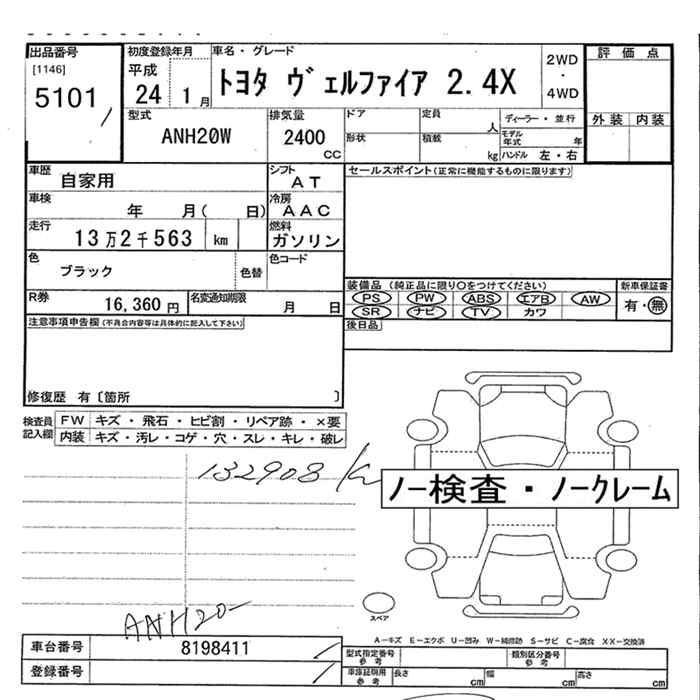 出品番号
[1146]
5101
初度登録年月
平成
24 1月
車名・グレード
トヨタ ヴェルファイア 2.4X
2WD
・
4WD
評価点
外装 内装
型式
ANH20W
排気量
2400
CC
ドア
形状
定員
人
積載
kg
ディーラー・並行
モデル年式 年
ハンドル 左・右
車歴
自家用
シフト
AT
セールスポイント(正常に機能するものに限ります)
車検
年 月( 日)
冷房
AAC
走行
13万2千563 km
燃料
ガソリン
色
ブラック
色替
色コード
装備品 (純正品に限り○をつけてください)
PS PW ABS エアB AW
SR ナビ TV カワ
新車保証書
有・無
R券
16,360 円
名変通知期限
月 日
後日品
注意事項申告欄(不具合内容等は具体的に記入して下さい)
修復歴 有〔箇所 〕
検査員記入欄
FW キズ・飛石・ヒビ割・リペア跡・×要
内装 キズ・汚レ・コゲ・穴・スレ・キレ・破レ
132908 km
ノー検査・ノークレーム
スペア
ANH20-
A-キズ E-エクボ U-凹み W-補修跡 S-サビ C-腐食 XX-交換済
車台番号 8198411
登録番号
型式指定番号 参考
類別区分番号 参考
車庫証明用 参考
長さ cm
幅 cm
高さ cm